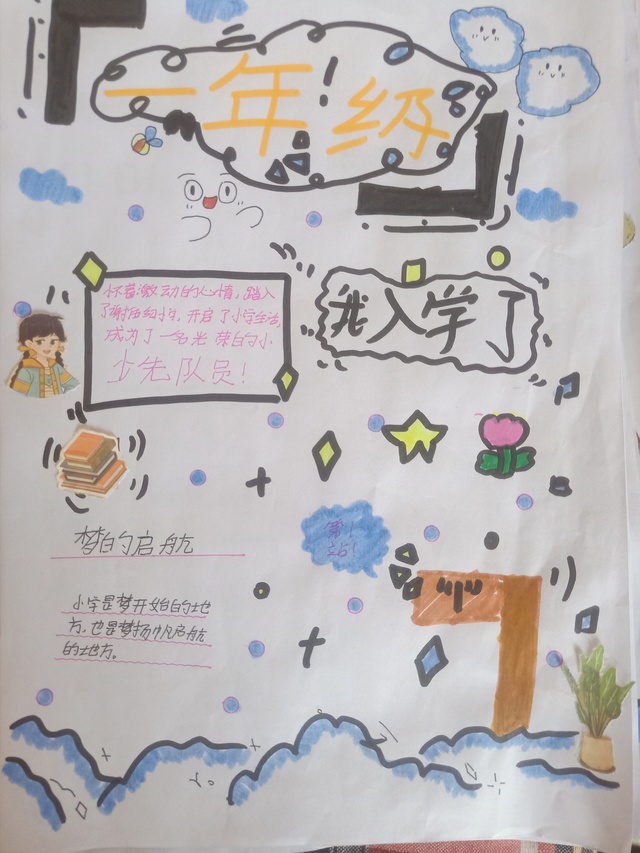 一年级
怀着激动的心情，踏入
了小学，开启了小学生活，
成为了一名光荣的小
少先队员！
我入学了
第1
站！
梦的启航
小学是梦开始的地
方，也是梦扬帆启航
的地方。